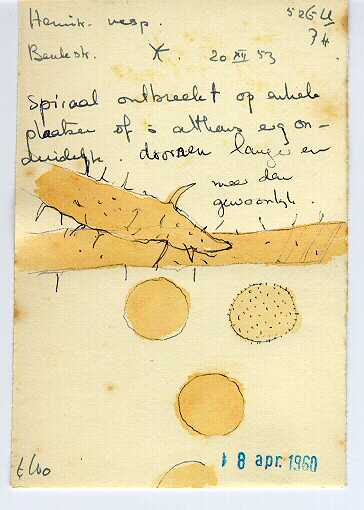 Hemik. vesp.
Beukesk. 20 XII 53
Spiraal ontbreekt op enkele
plaatsen of is althans erg on-
duidelijk. doornen langer en
meer dan
gewoonlijk.
18 apr. 1960